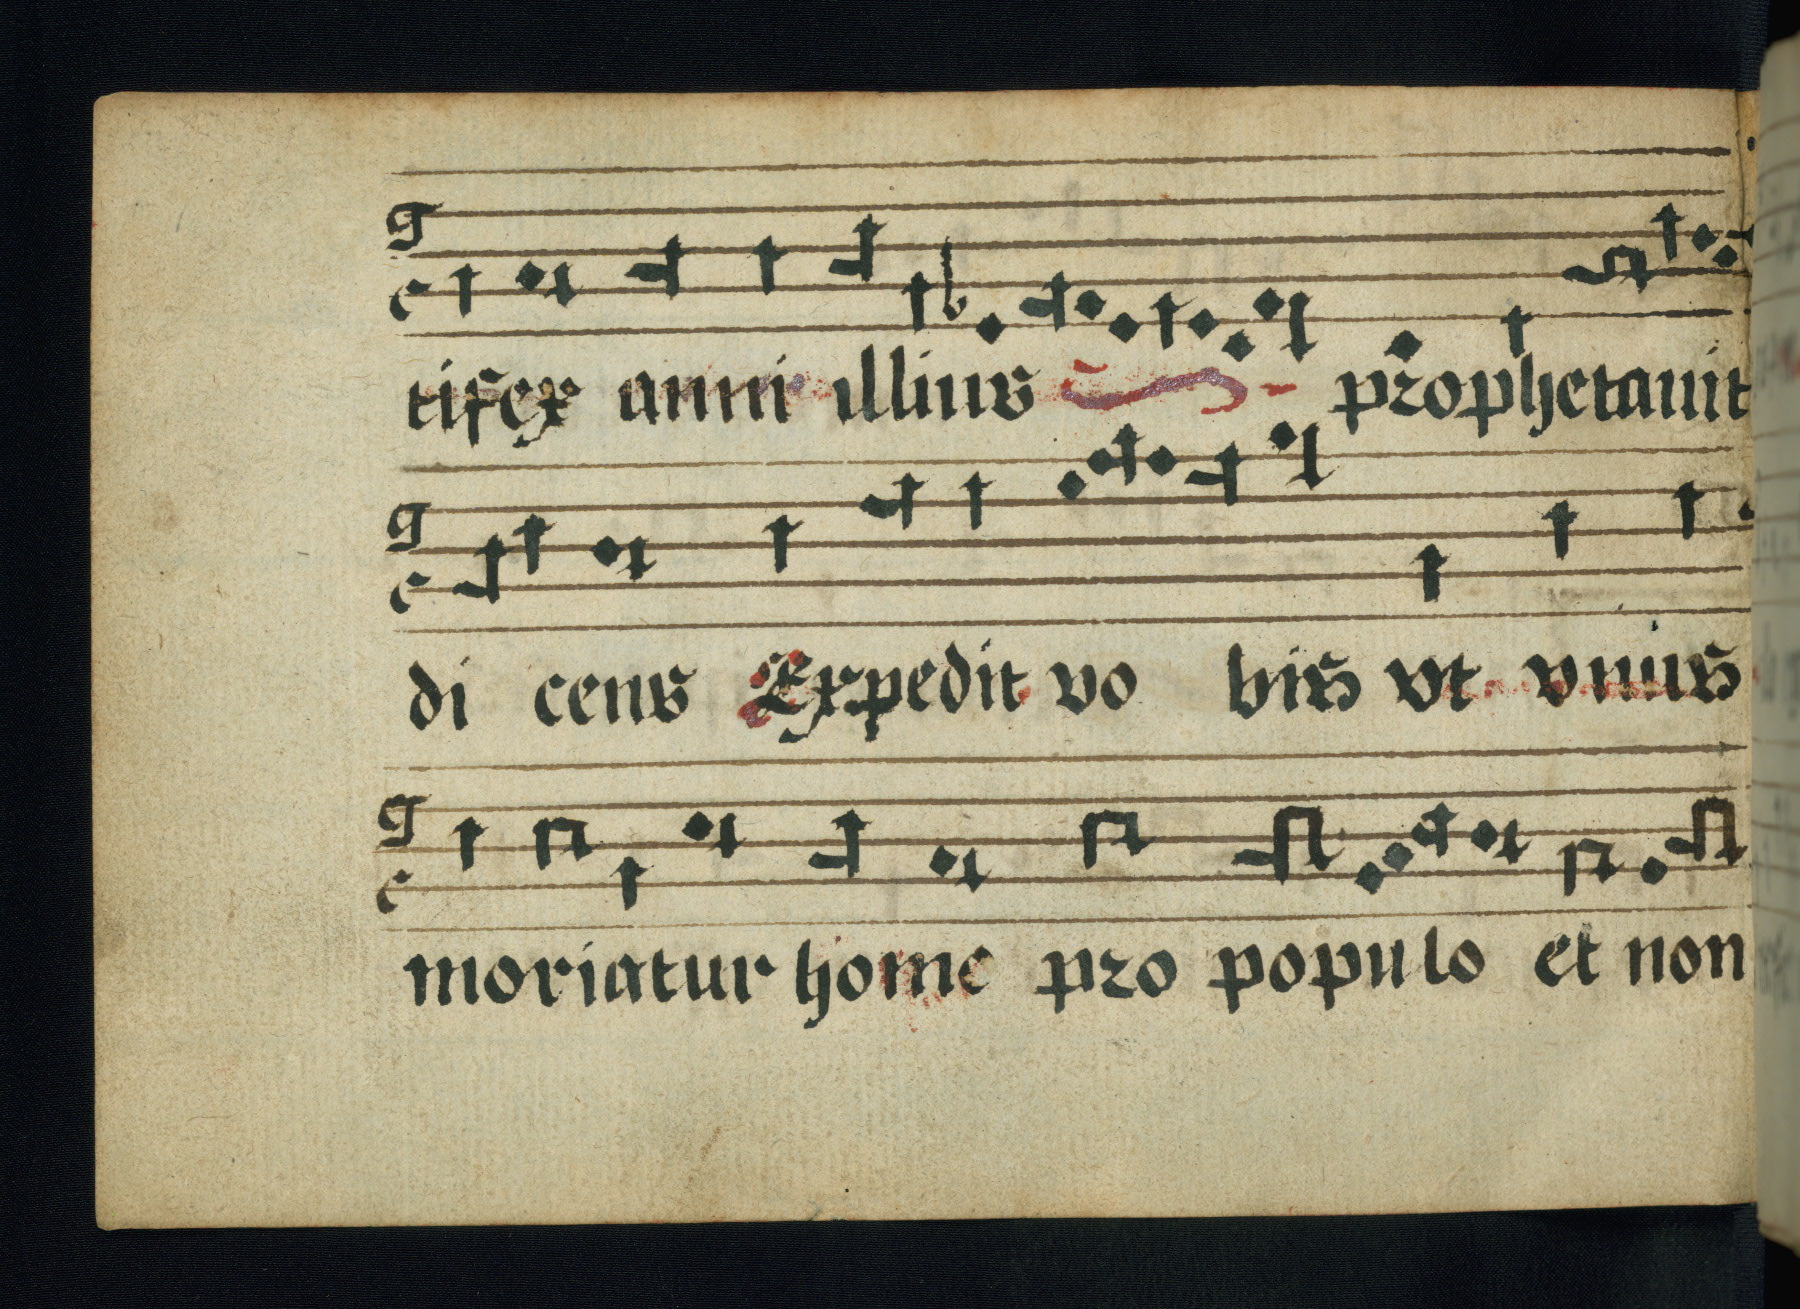 tifex anni illius prophetauit
di cens Expedit vo bis vt vnius
moriatur home pro populo et non